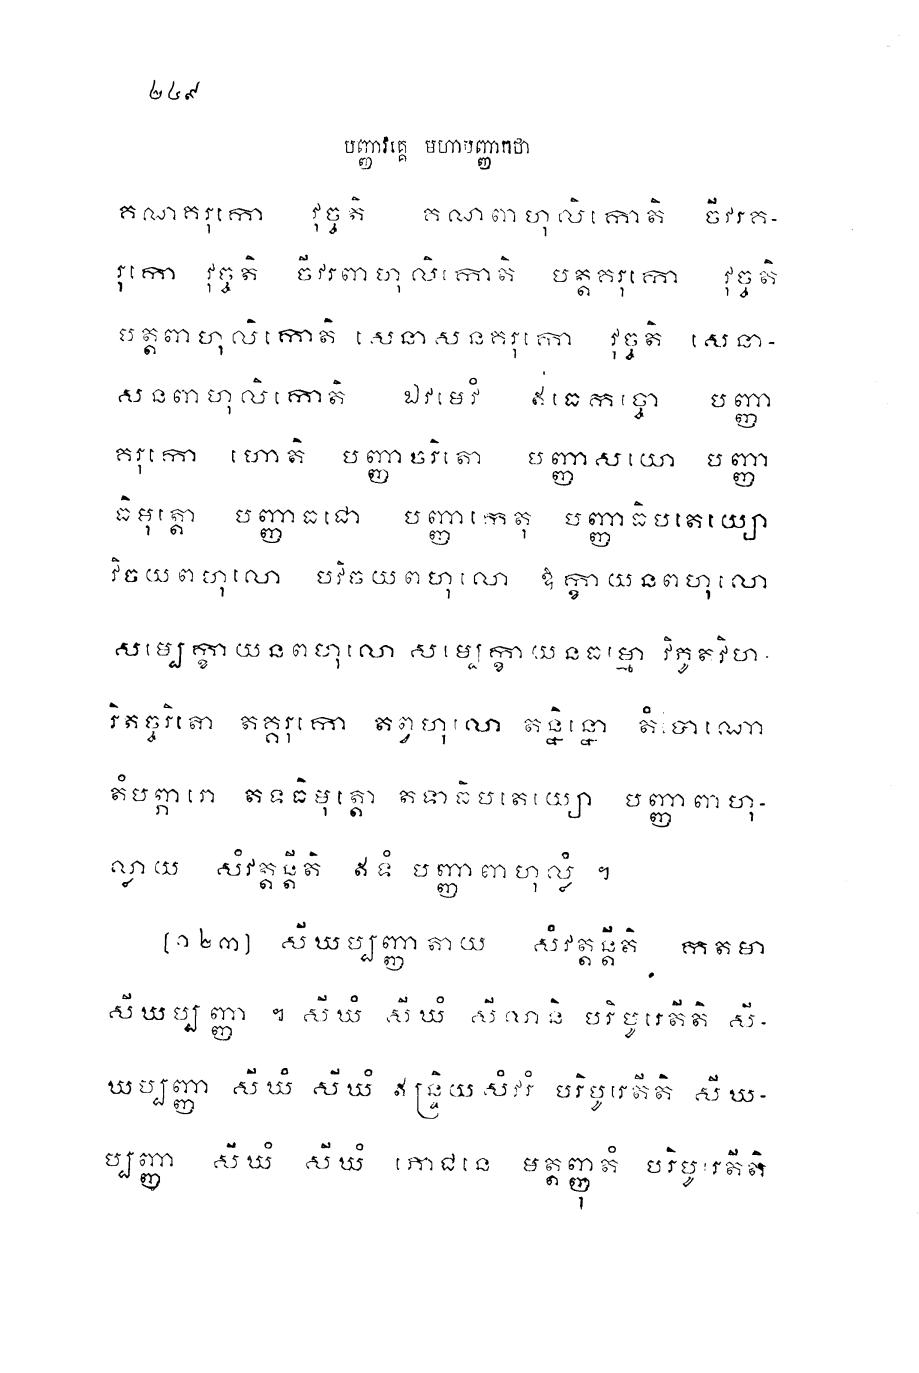 ២៤៩
បញ្ញាវគ្គេ មហាបញ្ញាកថា
គណគរុកោ វុច្ចតិ គណពាហុលិកោតិ ចីវរគ-
រុកោ វុច្ចតិ ចីវរពាហុលិកោតិ បត្តគរុកោ វុច្ចតិ
បត្តពាហុលិកោតិ សេនាសនគរុកោ វុច្ចតិ សេនា-
សនពាហុលិកោតិ ឯវមេវំ ឥធេកច្ចោ បញ្ញា
គរុកោ ហោតិ បញ្ញាចរិតោ បញ្ញាសយោ បញ្ញា
ធិមុត្តោ បញ្ញាធជោ បញ្ញាកេតុ បញ្ញាធិបតេយ្យោ
វិចយពហុលោ បវិចយពហុលោ ឱក្ខាយនពហុលោ
សម្បេក្ខាយនពហុលោ សម្បេក្ខាយនធម្មោ វិភូតវិហ-
រិតច្ចរិតោ តគ្គរុកោ តព្វហុលោ តន្និន្នោ តំបោណោ
តំបព្ភារោ តទធិមុត្តោ តទាធិបតេយ្យោ បញ្ញាពាហុ-
ល្លាយ សំវត្តន្តីតិ ឥទំ បញ្ញាពាហុល្លំ ។
[១២៣] សីឃប្បញ្ញាតាយ សំវត្តន្តីតិ កតមា
សីឃប្បញ្ញា ។ សីឃំ សីឃំ សីលានិ បរិបូរេតីតិ សី-
ឃប្បញ្ញា សីឃំ សីឃំ ឥន្ទ្រិយសំវរំ បរិបូរេតីតិ សីឃ-
ប្បញ្ញា សីឃំ សីឃំ ភោជនេ មត្តញ្ញុតំ បរិបូរេតីតិ